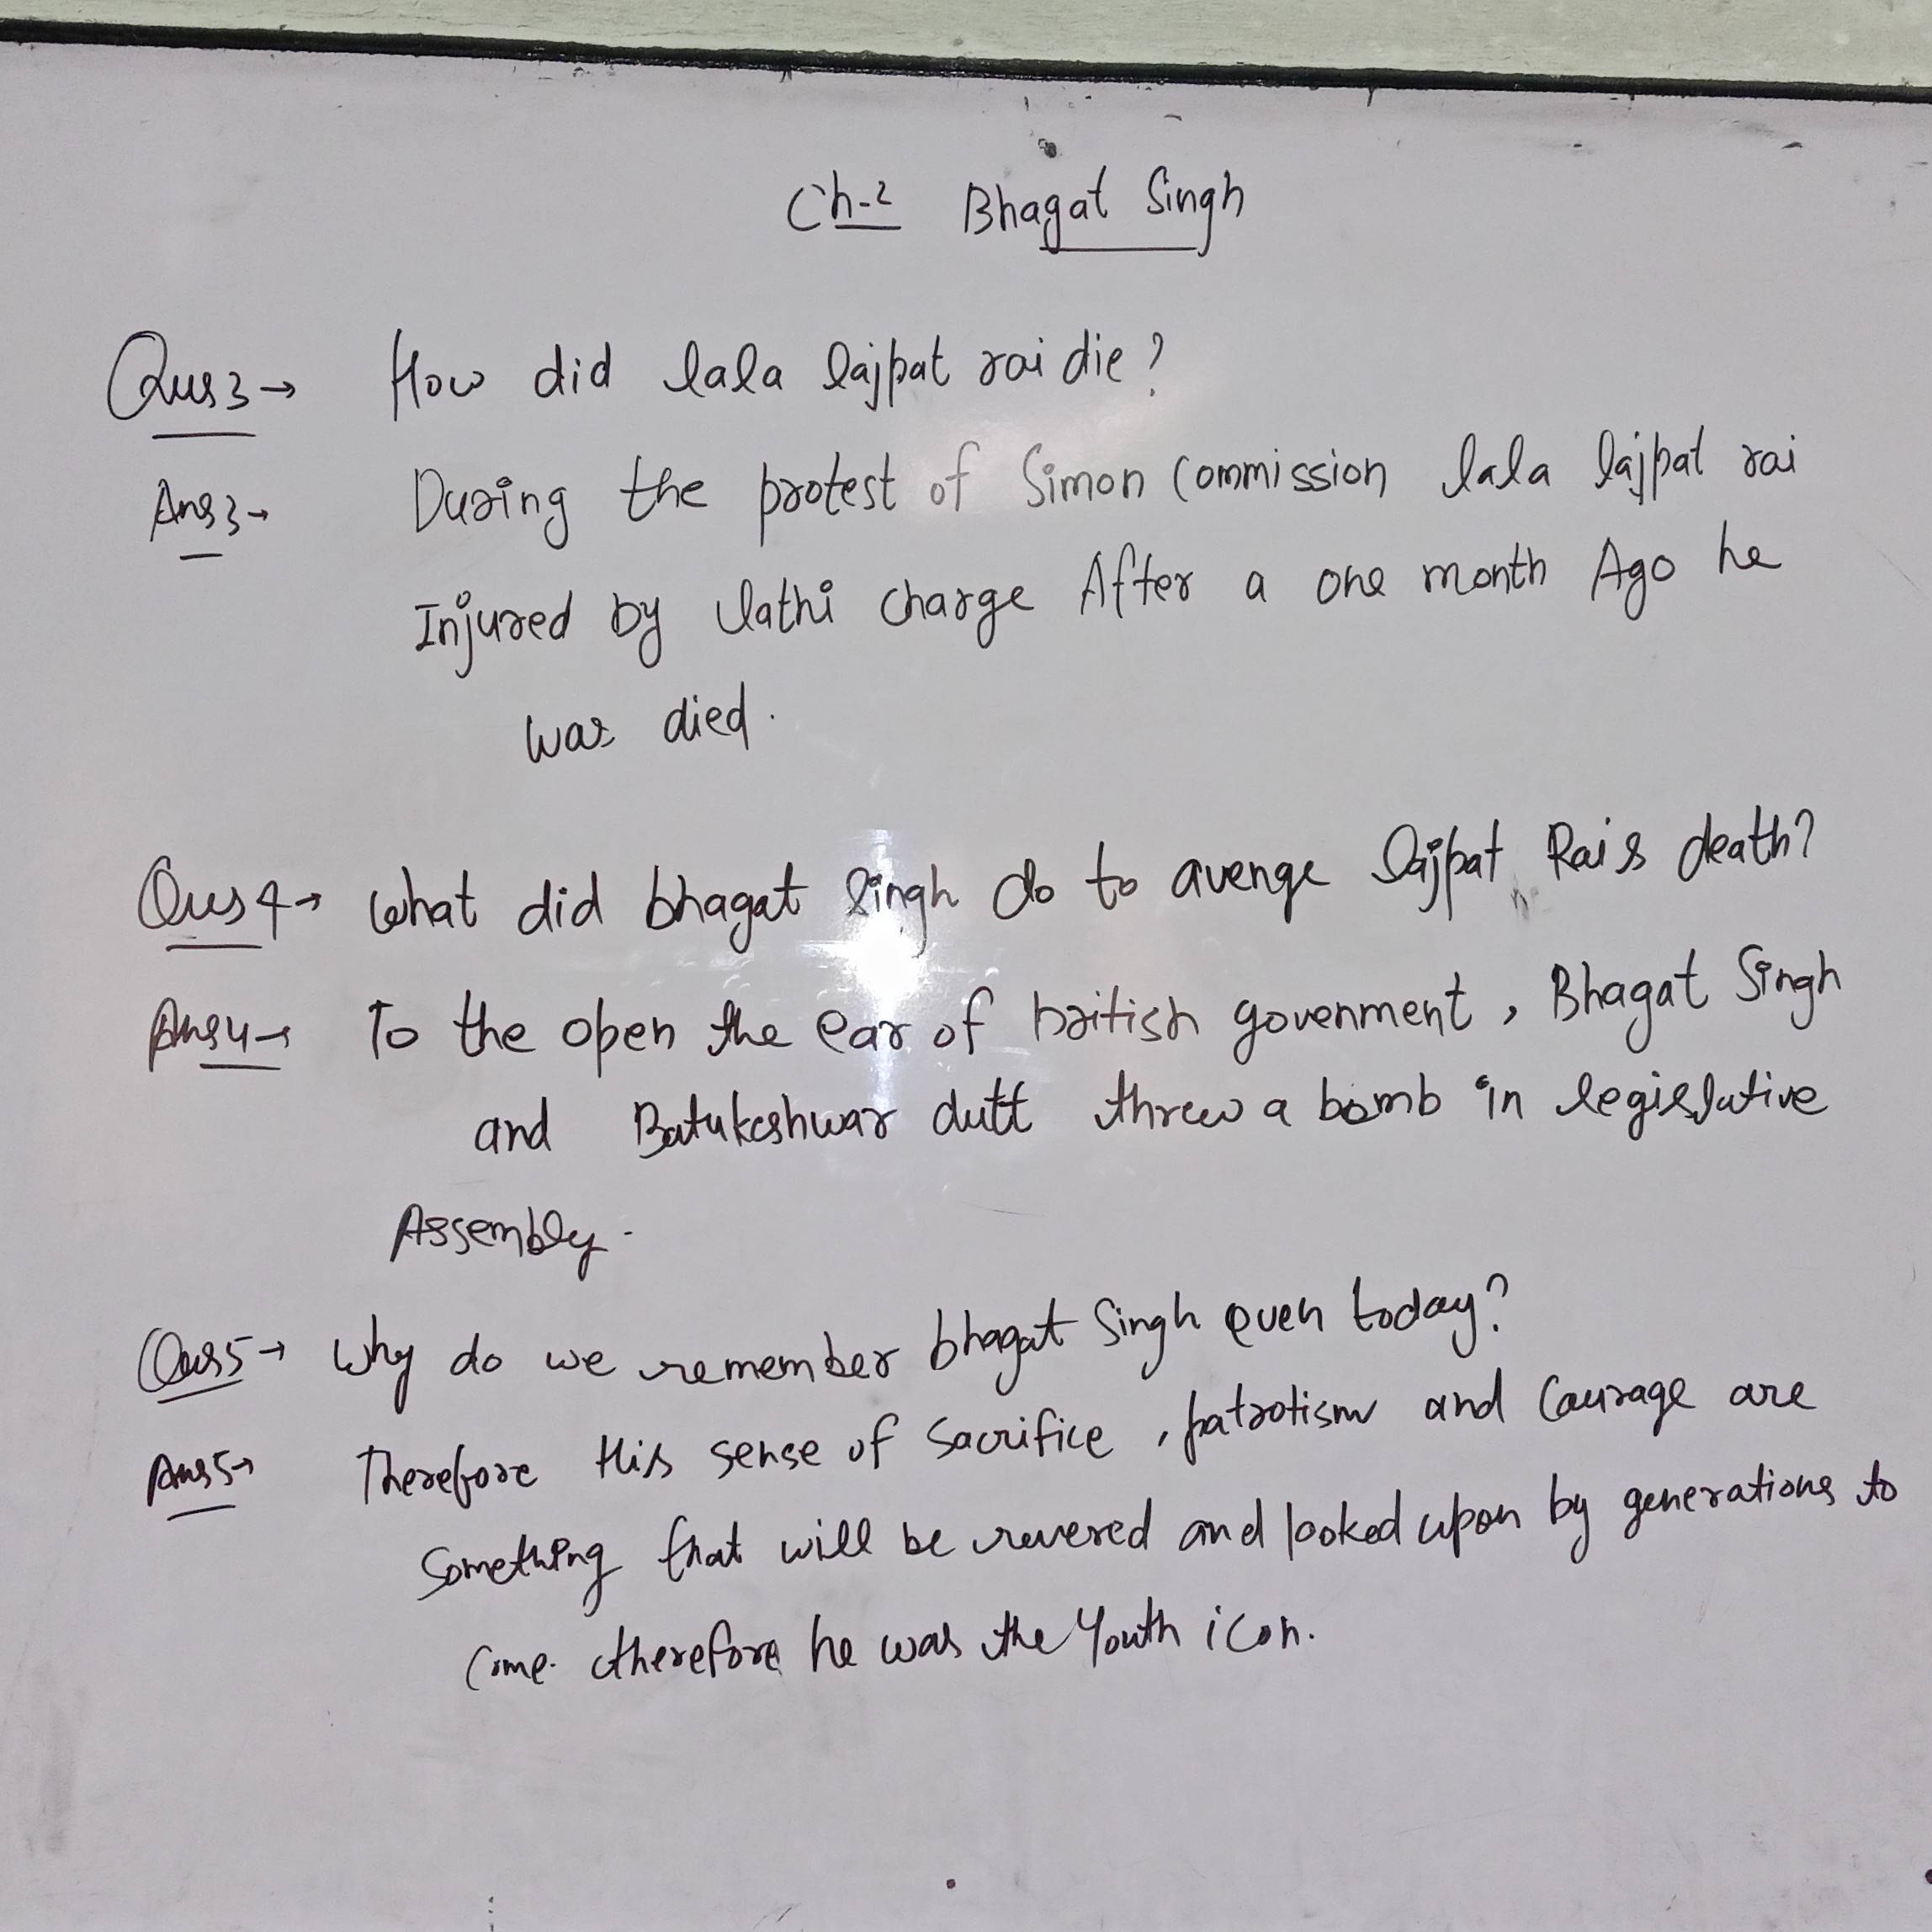 Ch-2 Bhagat Singh
Qus3→ How did lala lajpat rai die?
Ans3→ During the protest of Simon Commission lala lajpat rai
Injured by lathi charge After a one month Ago he
was died.
Qus4→ What did bhagat singh do to avenge lajpat Rais death?
Ans4→ To the open the ear of british govenment, Bhagat Singh
and Batukeshwar dutt threw a bomb in legislative
Assembly.
Qus5→ Why do we remember bhagat Singh even today?
Ans5→ Therefore this sense of sacrifice, patrotism and Caurage are
Something that will be revered and looked upon by generations to
Come. therefore he was the Youth icon.